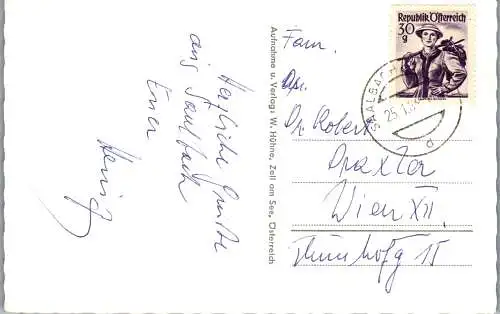 Herzliche Grüße
aus Saalbach
Euer
Heinz
Aufnahme u. Verlag: W. Hühne, Zell am See, Österreich
Republik Österreich
30
g
SAALBACH
25.1.
d
Fam.
Dr. Robert
Draxler
Wien XII.
15